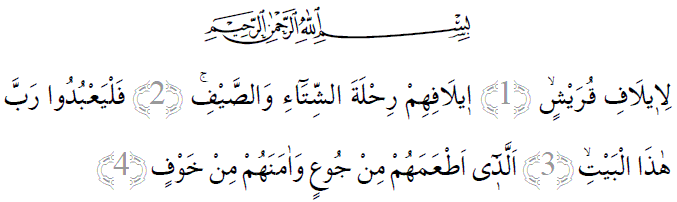 بِسْمِ اللّٰهِ الرَّحْمٰنِ الرَّحٖيمِ
لِاٖيلَافِ قُرَيْشٍۙ ﴿1﴾ اٖيلَافِهِمْ رِحْلَةَ الشِّتَٓاءِ وَالصَّيْفِۚ ﴿2﴾ فَلْيَعْبُدُوا رَبَّ
هٰذَا الْبَيْتِۙ ﴿3﴾ اَلَّذٖٓى اَطْعَمَهُمْ مِنْ جُوعٍ وَاٰمَنَهُمْ مِنْ خَوْفٍ ﴿4﴾